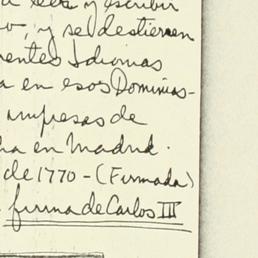 a leer y escribir
o, y se destierren
rentes Idiomas
a en esos Dominios-
ampresas de
ha en Madrid.
de 1770 - (Firmada)
firma de Carlos III